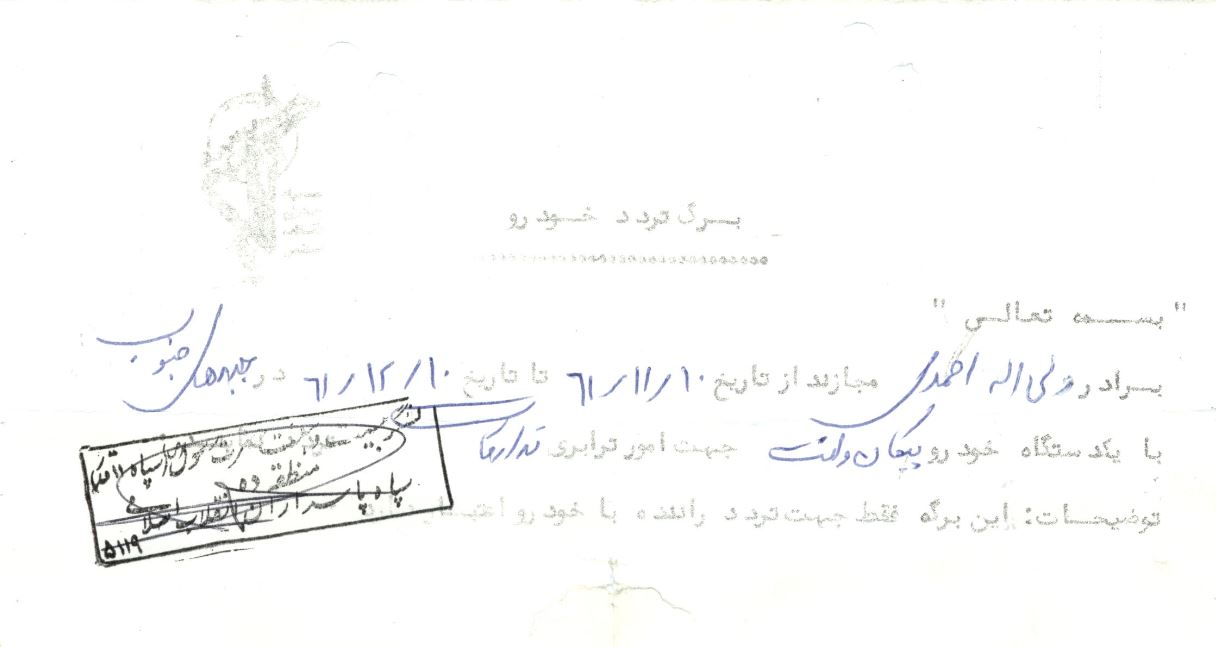 برگ تردد خودرو
" بسمه تعالی "
برادر ولی اله احمدی مجازند از تاریخ ۶۱/۱۱/۱۰ تا تاریخ ۶۱/۱۲/۱۰ در جبهه های جنوب
با یکدستگاه خودرو پیکان وانت جهت امور ترابری تدارکات
توضیحات: این برگه فقط جهت تردد راننده با خودرو اعتبار دارد
منطقه ده
سپاه پاسداران انقلاب اسلامی
۵۱۱۹